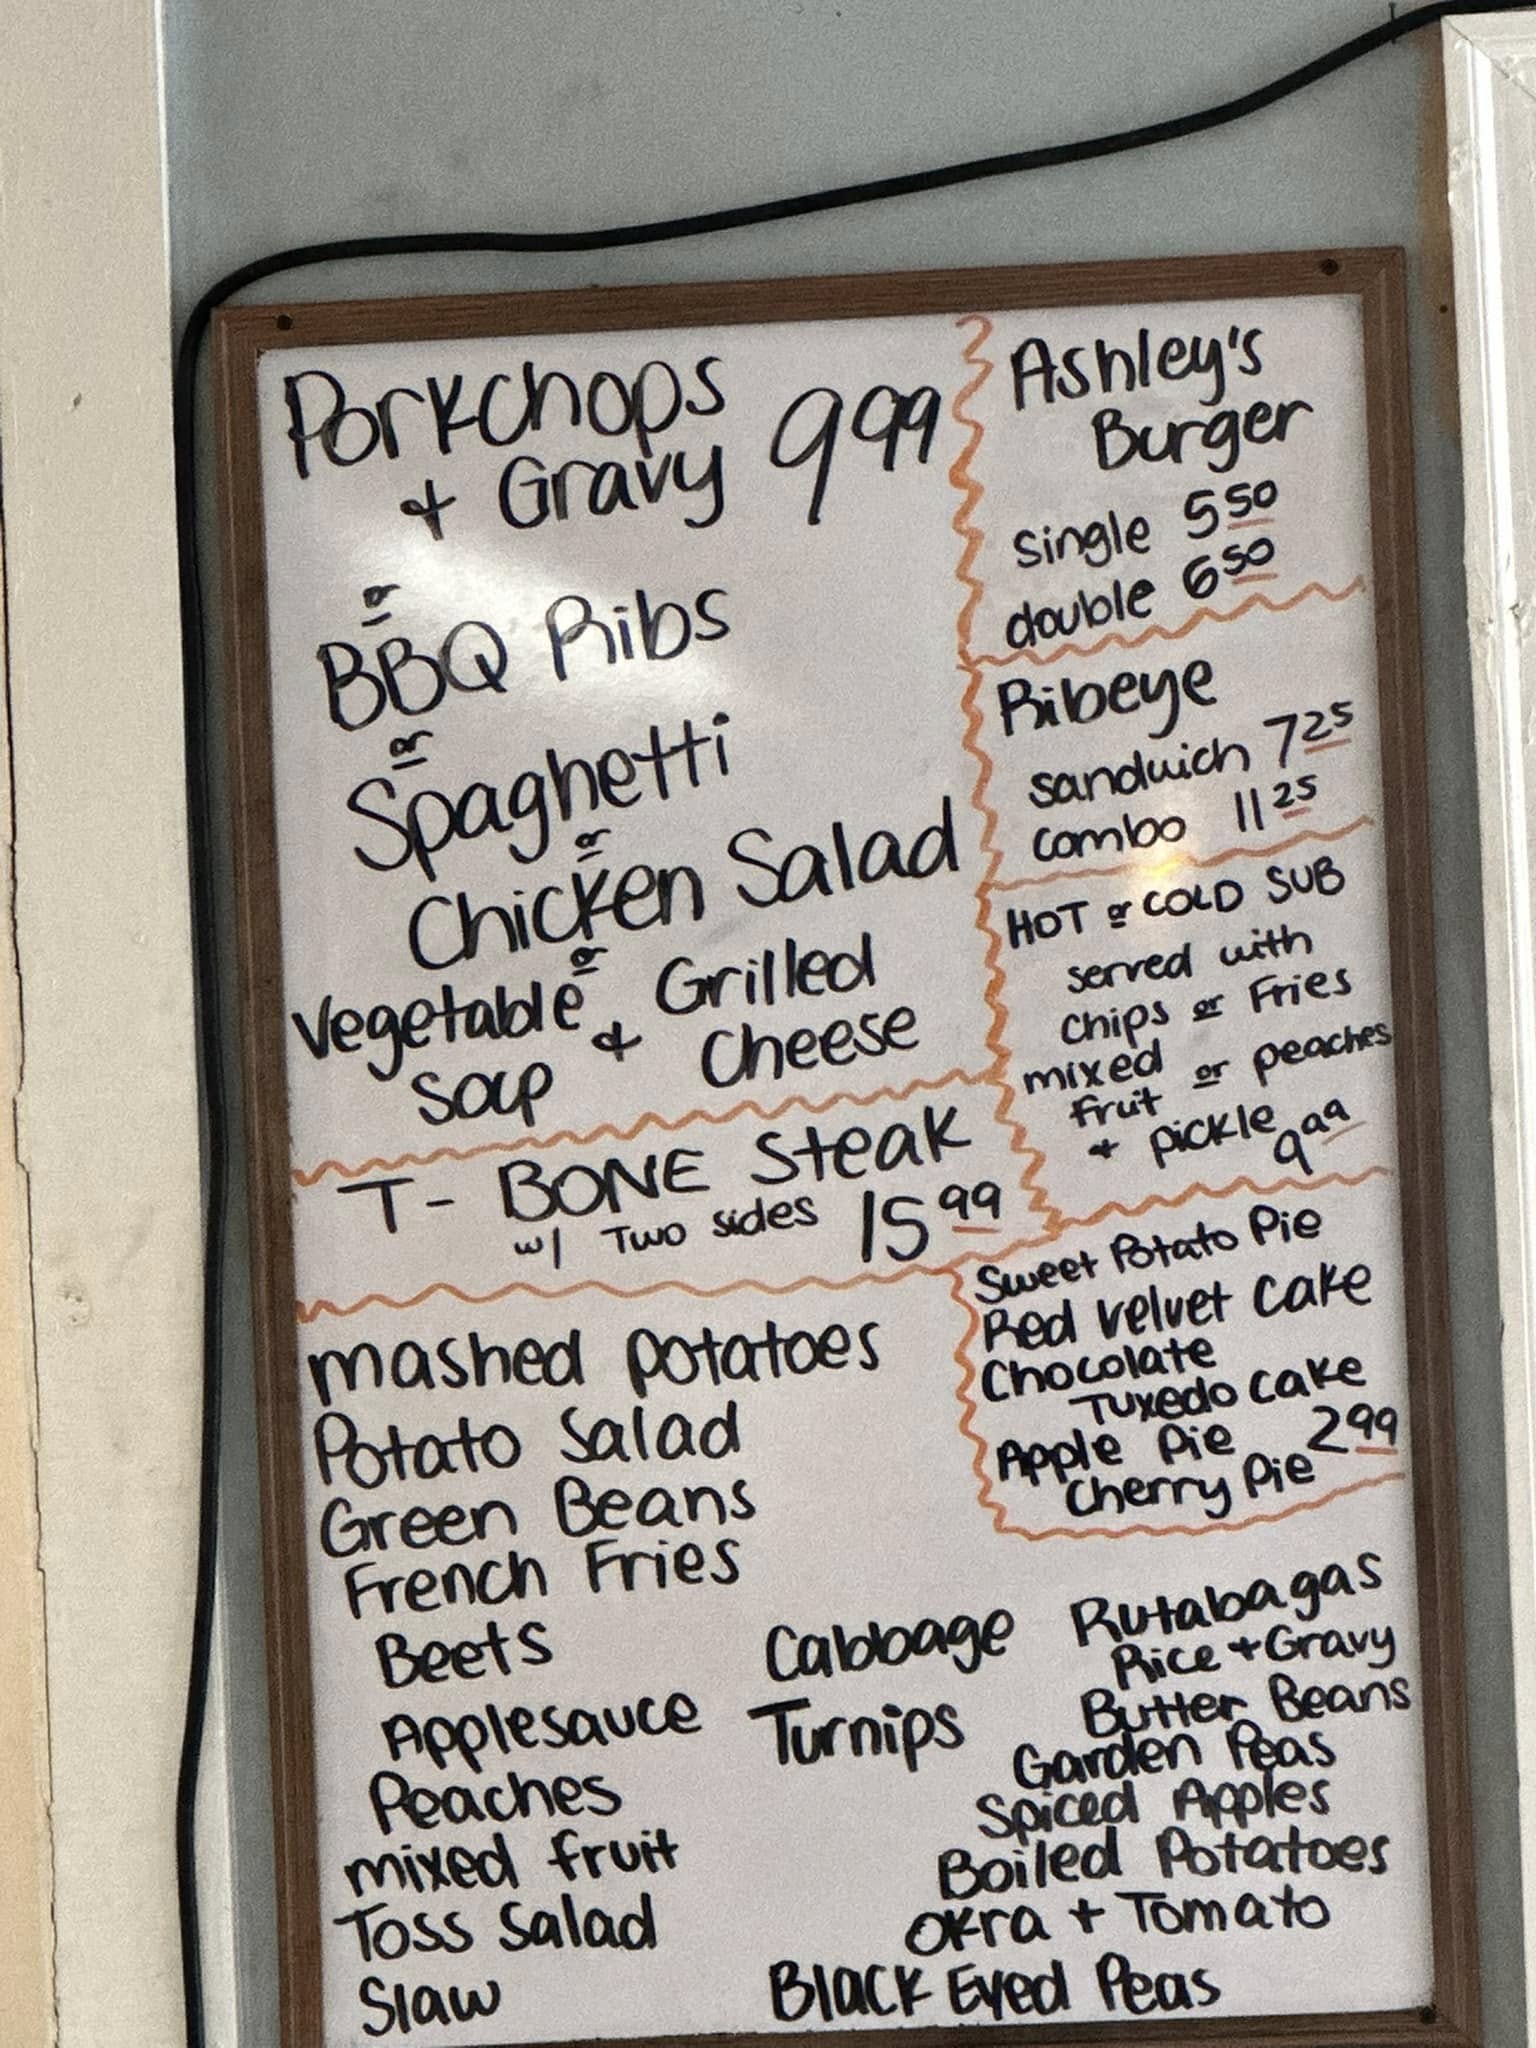 Porkchops
+ Gravy 9 99
or
BBQ Ribs
or
Spaghetti
or
Chicken Salad
or
Vegetable + Grilled
Soup Cheese
T- BONE Steak
w/ Two sides 15 99
mashed potatoes
Potato Salad
Green Beans
French Fries
Beets
Applesauce
Peaches
mixed fruit
Toss Salad
Slaw
Ashley's
Burger
single 5 50
double 6 50
Ribeye
sandwich 7 25
combo 11 25
HOT or COLD SUB
served with
chips or Fries
mixed
fruit or peaches
+ pickle 9 99
Sweet Potato Pie
Red Velvet Cake
Chocolate
Tuxedo Cake
Apple Pie 2 99
Cherry Pie
Cabbage
Turnips
Rutabagas
Rice + Gravy
Butter Beans
Garden Peas
Spiced Apples
Boiled Potatoes
Okra + Tomato
Black Eyed Peas